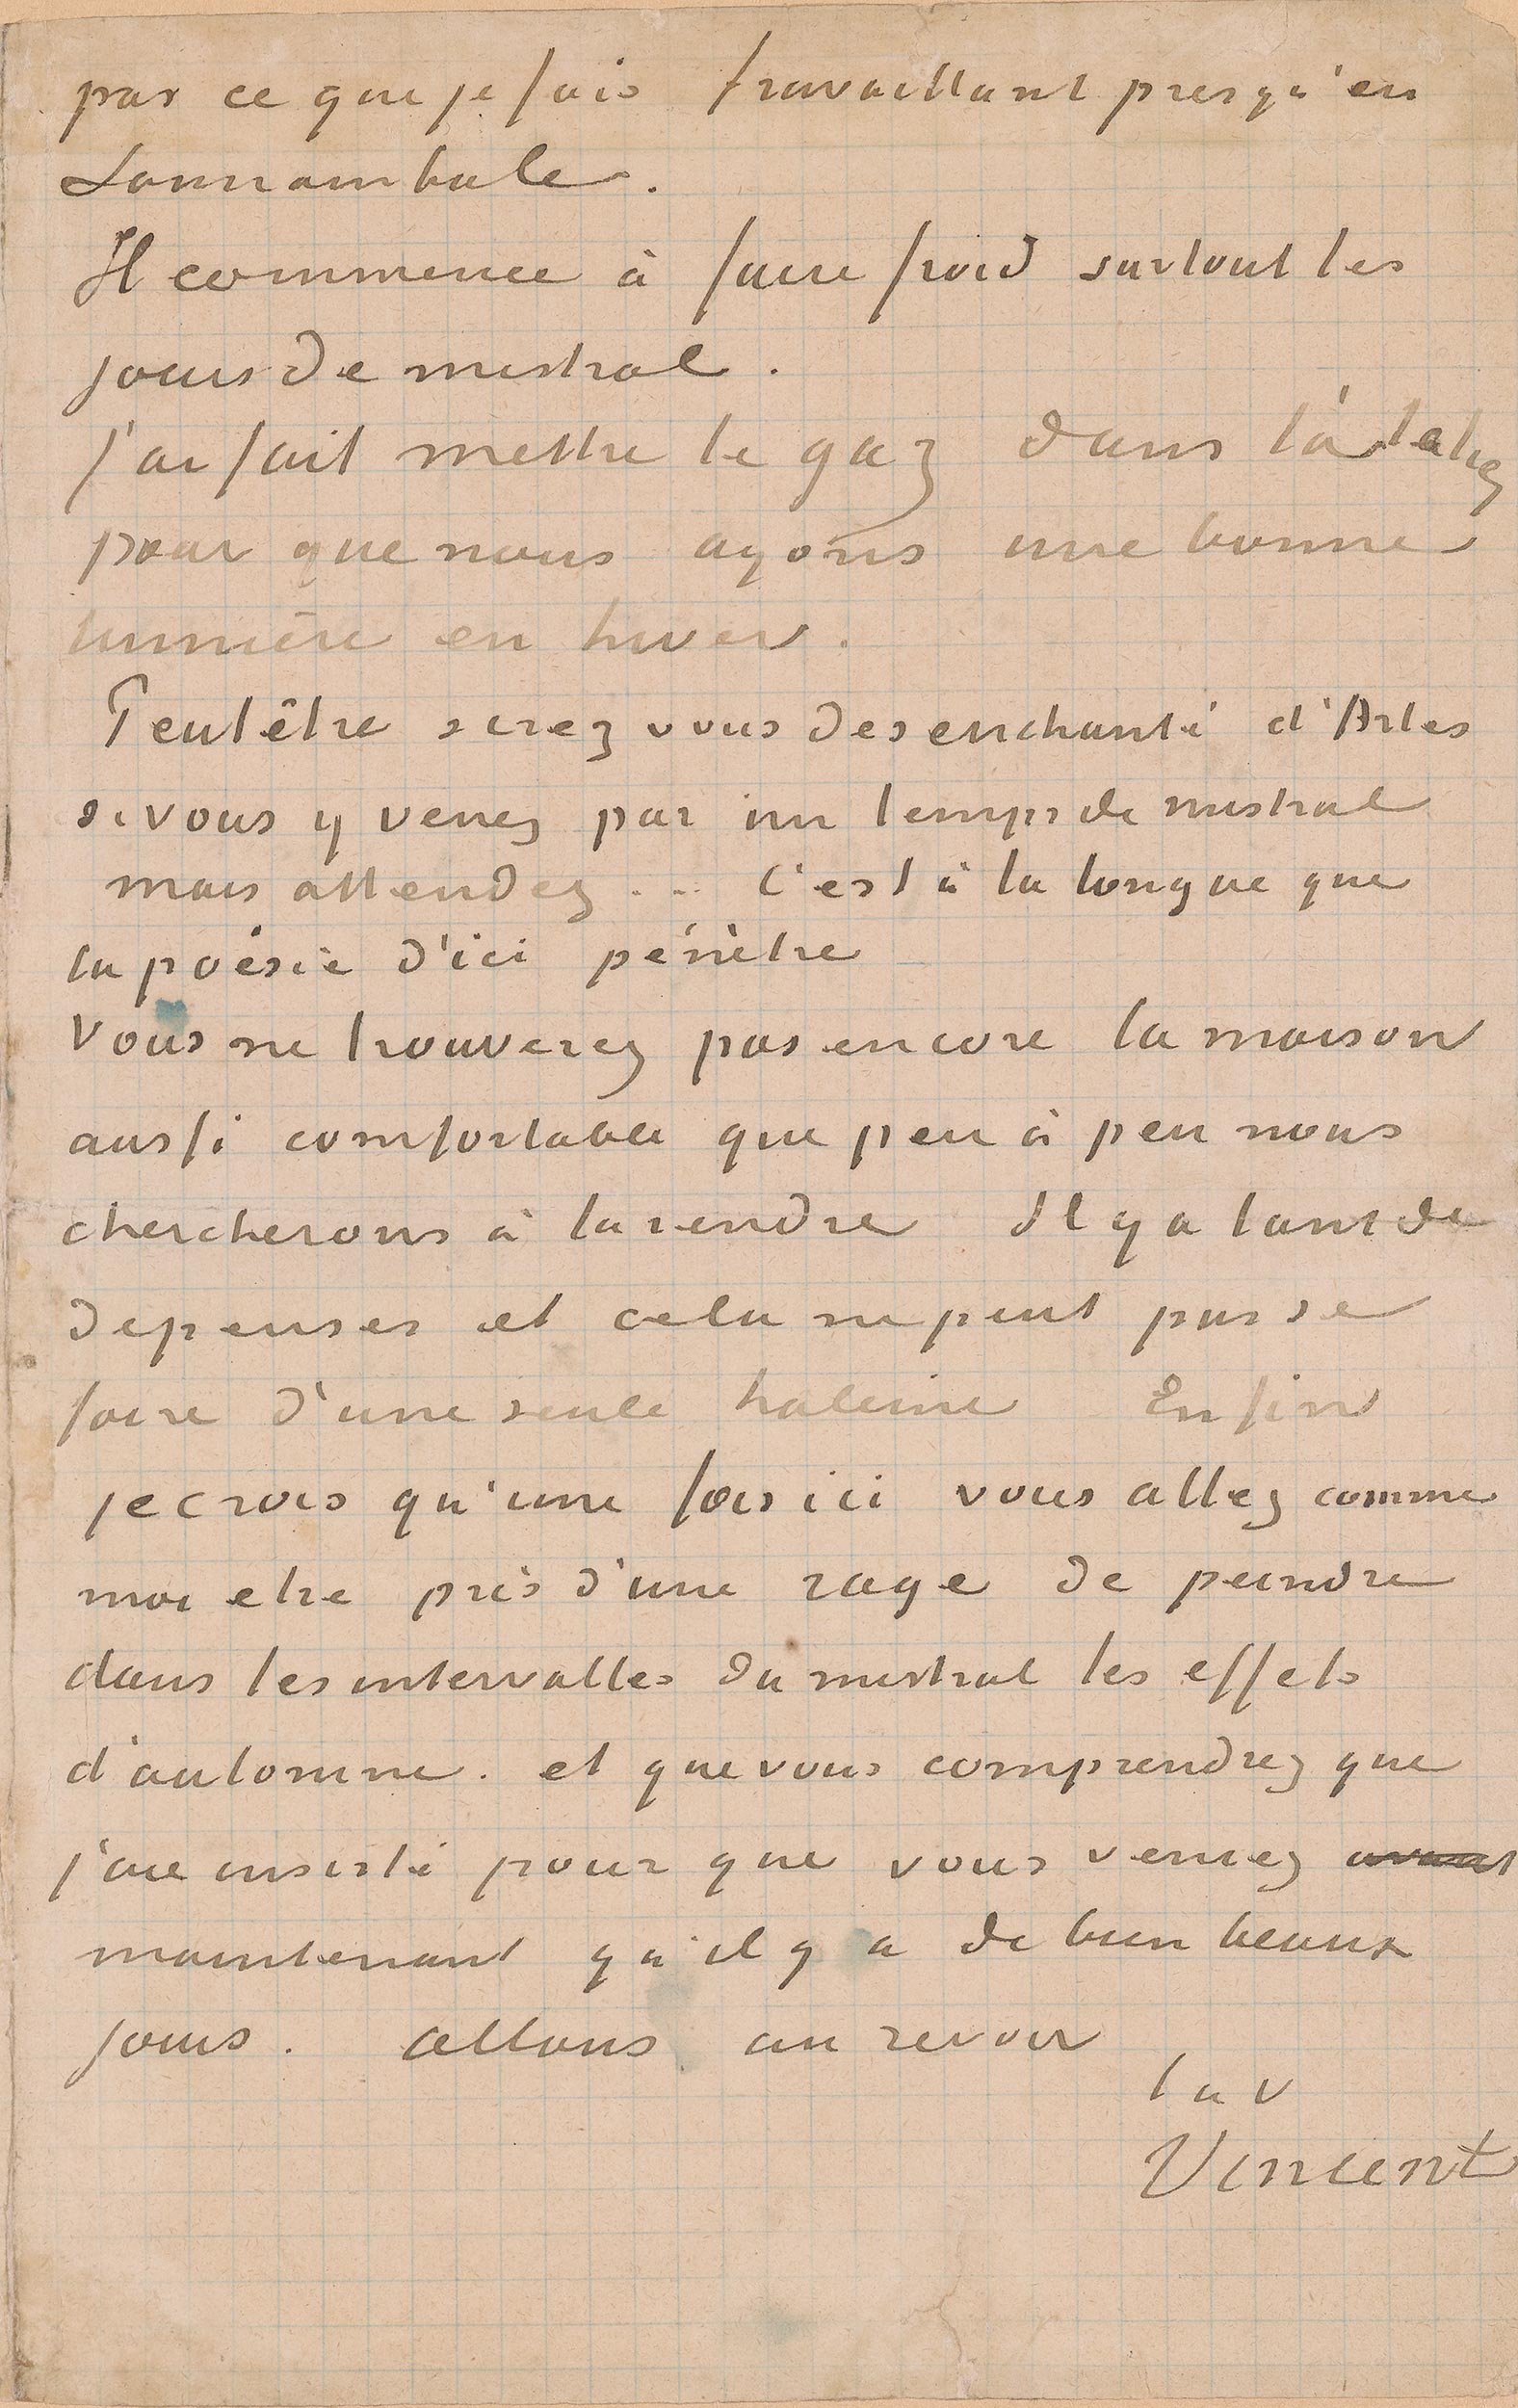 par ce que je fais travaillant presqu'en
somnambule.
Il commence à faire froid surtout les
jours de mistral.
j'ai fait mettre le gaz dans l'atelier
pour que nous ayons une bonne
lumière en hiver.
Peutêtre serez vous desenchanté d'Arles
si vous y venez par un temps de mistral
mais attendez... C'est à la longue que
la poésie d'ici pénètre
Vous ne trouverez pas encore la maison
aussi comfortable que peu à peu nous
chercherons à la rendre Il y a tant de
depenses et cela ne peut pas se
faire d'une seule haleine Enfin
je crois qu'une fois ici vous allez comme
moi etre pris d'une rage de peindre
dans les intervalles du mistral les effets
d'automne. et que vous comprendrez que
j'aie insisté pour que vous veniez avant
maintenant qu'il y a de bien beaux
jours. allons au revoir
t a v
Vincent